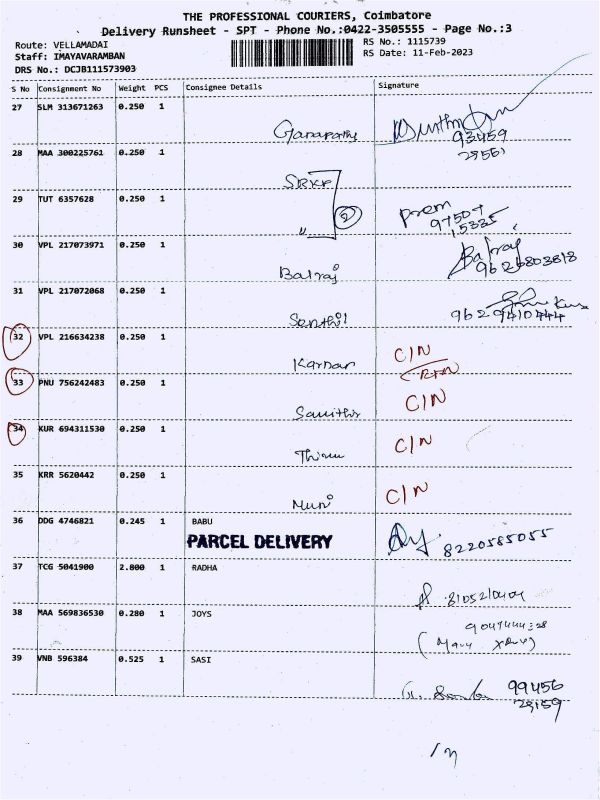 THE PROFESSIONAL COURIERS, Coimbatore
Delivery Runsheet - SPT - Phone No.:0422-3505555 - Page No.:3
Route: VELLAMADAI
RS No.: 1115739
Staff: IMAYAVARAMBAN
RS Date: 11-Feb-2023
DRS No.: DCJB111573903
S No Consignment No Weight PCS Consignee Details Signature
27 SLM 313671263 0.250 1
Ganapathy
93459
28 MAA 300225761 0.250 1
SRKP
29 TUT 6357628 0.250 1
2
"
Prem
97507
15335
30 VPL 217073971 0.250 1
Balraj
Balraj
9626803818
31 VPL 217072068 0.250 1
Senthil
9629410444
32 VPL 216634238 0.250 1
Karnan
C/N
RTN
33 PNU 756242483 0.250 1
C/N
34 KUR 694311530 0.250 1
C/N
35 KRR 5620442 0.250 1
Muni
C/N
36 DDG 4746821 0.245 1 BABU
PARCEL DELIVERY
8220585055
37 TCG 5041900 2.800 1 RADHA
38 MAA 569836530 0.280 1 JOYS
39 VNB 596384 0.525 1 SASI
99456